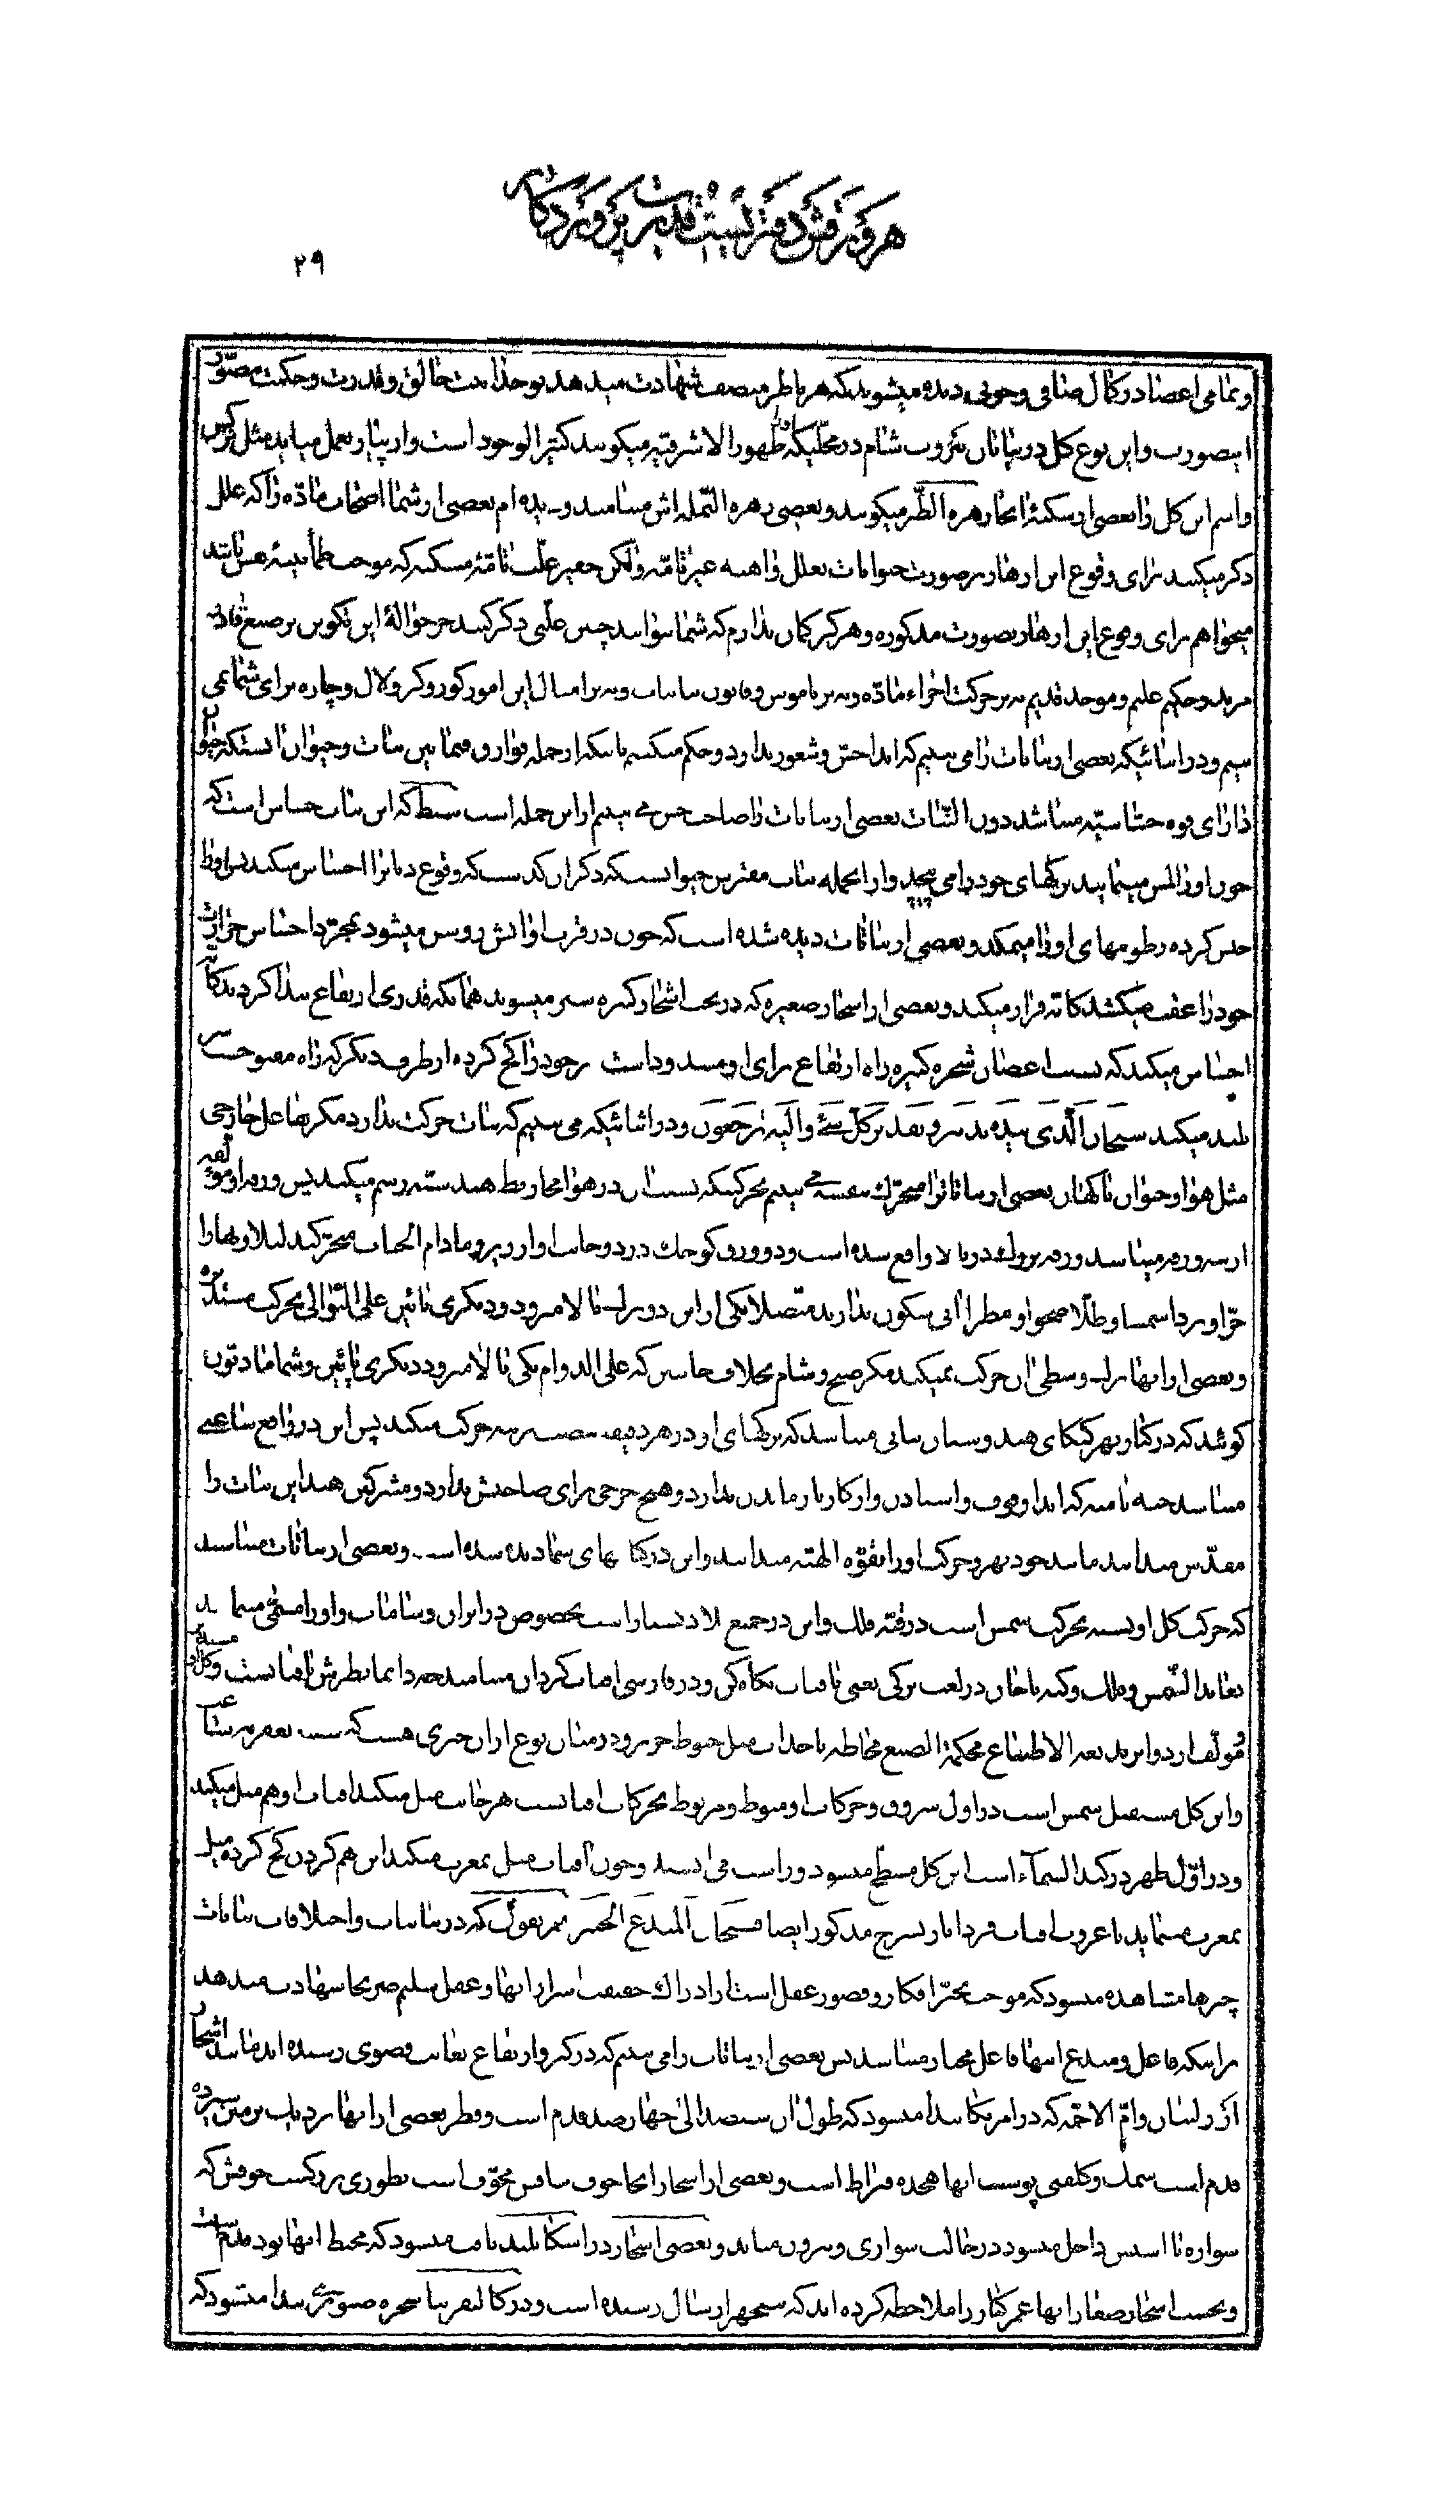 هر ورقش دفتریست قدرت پروردگار
۲۹
و تمامی اعضا در کمال صافی و خوبی دیده میشوند که هر ناظر منصف شهادت میدهد بوحدانیت خالق و قدرت و حکمت مصوّر
اینصورت و این نوع گل در بیابان بیروت شام در محلّیکه اورا ظهور الاشرفیّه میگویند کثیر الوجود است و از پیاز بعمل میاید مثل نرگس
و اسم این گل را بعضی از سکنهٔ انجا زهرة الطّیر میگویند و بعضی زهرة النّحله اش مینامند و دیده ام بعضی از شما اصحاب مادّه را که علل
ذکر میکنید برای وقوع این ازهار بر صورت حیوانات بعلل واهیه غیر تامّه ولکن حقیر علّت تامّهٔ مسکته که موجب طمأنینهٔ نفس باشد
میخواهم برای وقوع این ازهار بصورت مذکوره و هرگز گمان ندارم که شما بتوانید چنین علّتی ذکر کنید جز حوالهٔ این تکوین بر صنع قادر
مرید و حکیم علیم و موجد قدیم نه بر حرکت اجزاء مادّه و نه بر ناموس و قانون نباتات و نه بر امثال این امور کور و کر و لال و چاره برای شما نمی
بینم و در اثنائیکه بعضی از نباتات را می بینیم که ابدا حسّ و شعور ندارد و حکم میکنیم باینکه از جمله فوارق فیما بین نبات و حیوان انستکه حیوان
دارای قوه حسّاسیّه میباشد دون النّبات بعضی از نباتات را صاحب حس می بینیم از این جمله است سنط که این نبات حساس است که
چون اورا لمس مینمایید برگهای خود را می پیچد و از انجمله نبات مفترس حیوانست که ذکر ان گذشت که وقوع ذبابرا احساس میکند پس اورا
حبس کرده رطوبتهای اورا میمکد و بعضی از نباتات دیده شده است که چون در قرب او اتش روشن میشود بمجرّد احساس حرارت
خود را عقب میکشد کانّه فرار میکند و بعضی از اشجار صغیره که در تحت اشجار کبیره سبز میشوند همانکه قدری ارتفاع پیدا کردند کانّه
احساس میکند که بسبب اغصان شجره کبیره راه ارتفاع برای او مسدود است سر خود را کج کرده از طرف دیگر که راه مفتوحست سر
بلند میکند سبحان الّذی بیده تدبیر و تقدیر کلّ شئ و الیه ترجعون و در اثنائیکه می بینیم که نبات حرکت ندارد مگر بفاعل خارجی
مثل هوا و حیوان ناگهان بعضی از نباتاترا متحرّک بنفسه می بینیم بحرکتیکه نسبت ان در هوا خطوط هندسیّه رسم میکند پس ورقه او مؤلفه
از سه ورقه میباشد ورقه بزرگ در بالا واقع شده است و دو ورق کوچک در دو جانب او روبرو مادام الحیات متحرّکند لیلا و نهارا
حرّا و بردا شمسا و ظلّا صحوا و مطرا انی سکون ندارند متّصلا یکی از این دو برگ بالا میرود و دیگری پائین علی التّوالی بحرکت مستدیره
و بعضی از انها برگ وسطی ان حرکت نمیکند مگر صبح و شام بخلاف جانبین که علی الدوام یکی بالا میرود دیگری پائین و شما مادّیون
گوئید که در کنار نهر گنگای هندوستان نباتی میباشد که برگهای او در هر دقیقه شصت مرتبه حرکت میکند پس این در واقع ساعتی
میباشد حیّه نامیه که ابدا وقوف و ایستادن و از کار باز ماندن ندارد و هیچ خرجی برای صاحبش ندارد و مشرکین هند این نبات را
مقدّس میدانند مانند خود نهر و حرکت اورا بقوّه الهیّه میدانند و این در کتابهای شما دیده شده است و بعضی از نباتات میباشند
که حرکت گل او بسته بحرکت شمس است در قبّه فلک و این در جمیع بلاد بسیار است بخصوص در ایران و شامات و اورا مسمّی مینمایند
بعابد الشّمس و فلک و گنه باخان در لغت ترکی یعنی بافتاب نگاه کن و در فارسی افتاب گردان مینامند چه دائما نظرش بافتابست و گل
مؤلّف از دوایر بدیعة الانطباع محکمة الصنع محاطه
و این گل مستقبل شمس است در اول شروق و حرکات او منوط و مربوط بحرکات افتابست هر جانب میل میکند افتاب او هم میل میکند
و در اوّل ظهر در کبد السماء است این گل مسطّح میشود و راست می ایستد و چون افتاب میل بمغرب میکند این هم گردن کج کرده میل
بمغرب مینماید تا غروب افتاب فردا باز بشرح مذکور ایضا فسبحان المبدع الخبیر ثمّ نقول که در نباتات و اختلافات نباتات
چیزها مشاهده میشود که موجب تحیّر افکار و قصور عقل است از ادراک حقیقت اسرار انها و عقل سلیم صریحا شهادت میدهد
بر اینکه فاعل و مبدع اینها فاعل مختار میباشد پس بعضی از نباتات را می بینیم که در کبر و ارتفاع بغایت قصوی رسیده اند مانند اشجار
ارز لبنان و امّ الاجمه که در امریکا پیدا میشود که طول ان سیصد الی چهارصد قدم است و قطر بعضی از انها نزدیک بر متن سیزده
قدم است سمک و کلفتی پوست انها هجده قیراط است و بعضی از اشجار انجا جوف ساقش مجوّف است بطوری بزرگست جوفش که
سواره با اسبش داخل میشود در حالت سواری و بیرون میاید و بعضی اشجار در اسکاتلند یافت میشود که محیط انها نود قدم است
و بحسب اشجار صغار انها عمر کبار را ملاحظه کرده اند که پنجهزار سال رسیده است و در کالیفرنیا شجره صنوبری پیدا میشود که